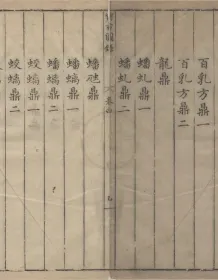 百乳方鼎一
百乳方鼎二
龍鼎
蟠虬鼎一
蟠虬鼎二
圖錄
蟠虺鼎
蟠螭鼎一
蟠螭鼎二
蛟螭鼎一
蛟螭鼎二